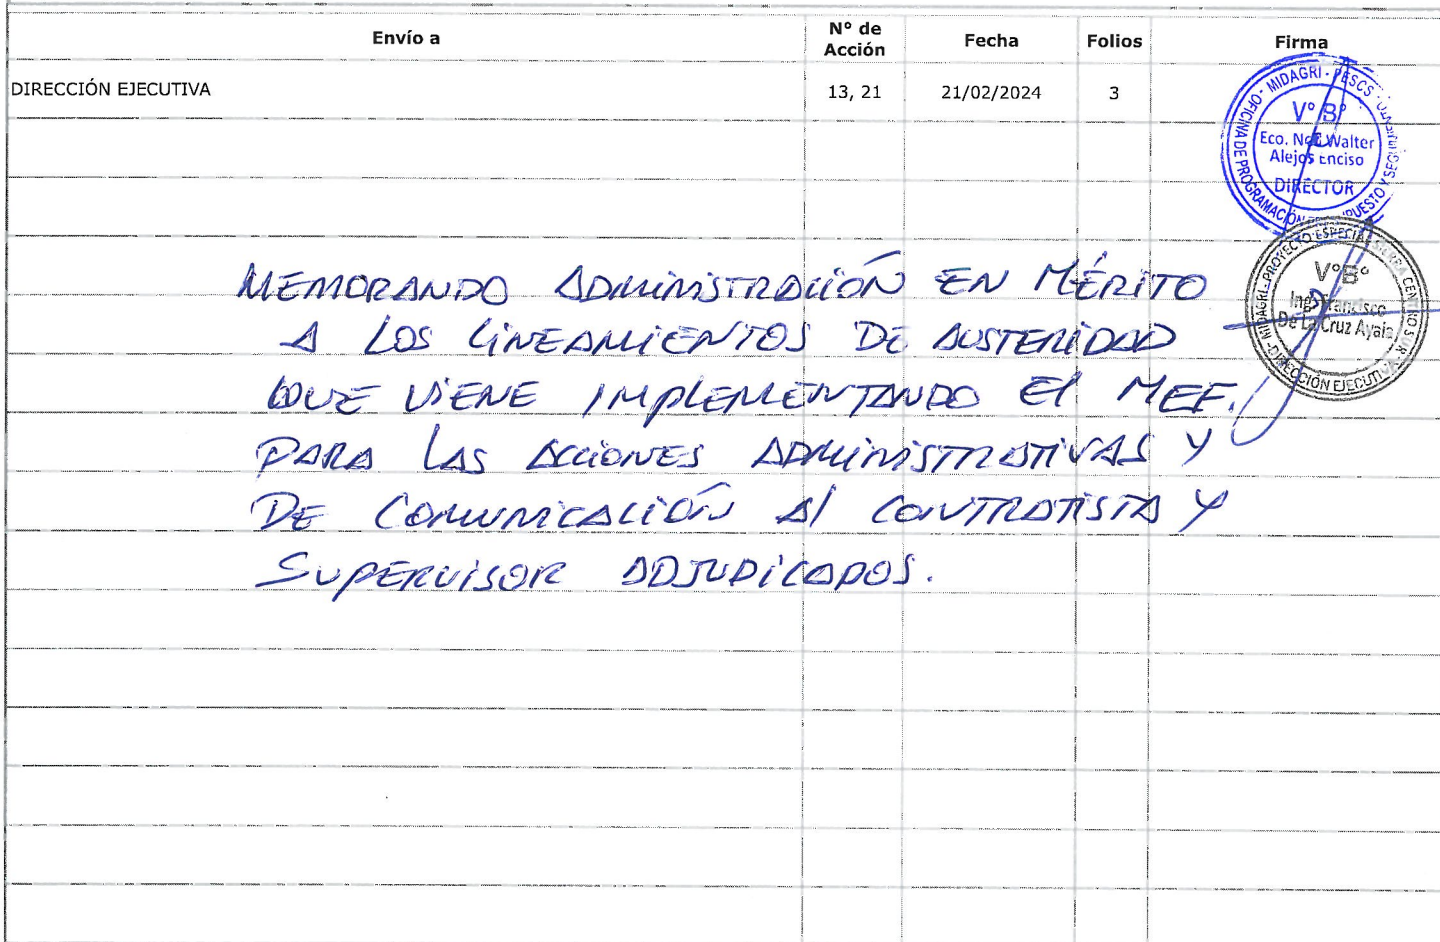 Envío a	Nº de Acción	Fecha	Folios	Firma
DIRECCIÓN EJECUTIVA	13, 21	21/02/2024	3
MIDAGRI - PESCS
OFICINA DE PROGRAMACIÓN
V° B°
Eco. Noé Walter
Alejos Enciso
DIRECTOR
MIDAGRI - PROYECTO ESPECIAL SIERRA CENTRO SUR
V° B°
Ing. Francisco
De La Cruz Ayala
DIRECCIÓN EJECUTIVA
MEMORANDO ADMINISTRACIÓN EN MÉRITO
A LOS LINEAMIENTOS DE AUSTERIDAD
QUE VIENE IMPLEMENTANDO El MEF.
PARA LAS ACCIONES ADMINISTRATIVAS Y
DE COMUNICACIÓN Al CONTRATISTA Y
SUPERVISOR ADJUDICADOS.